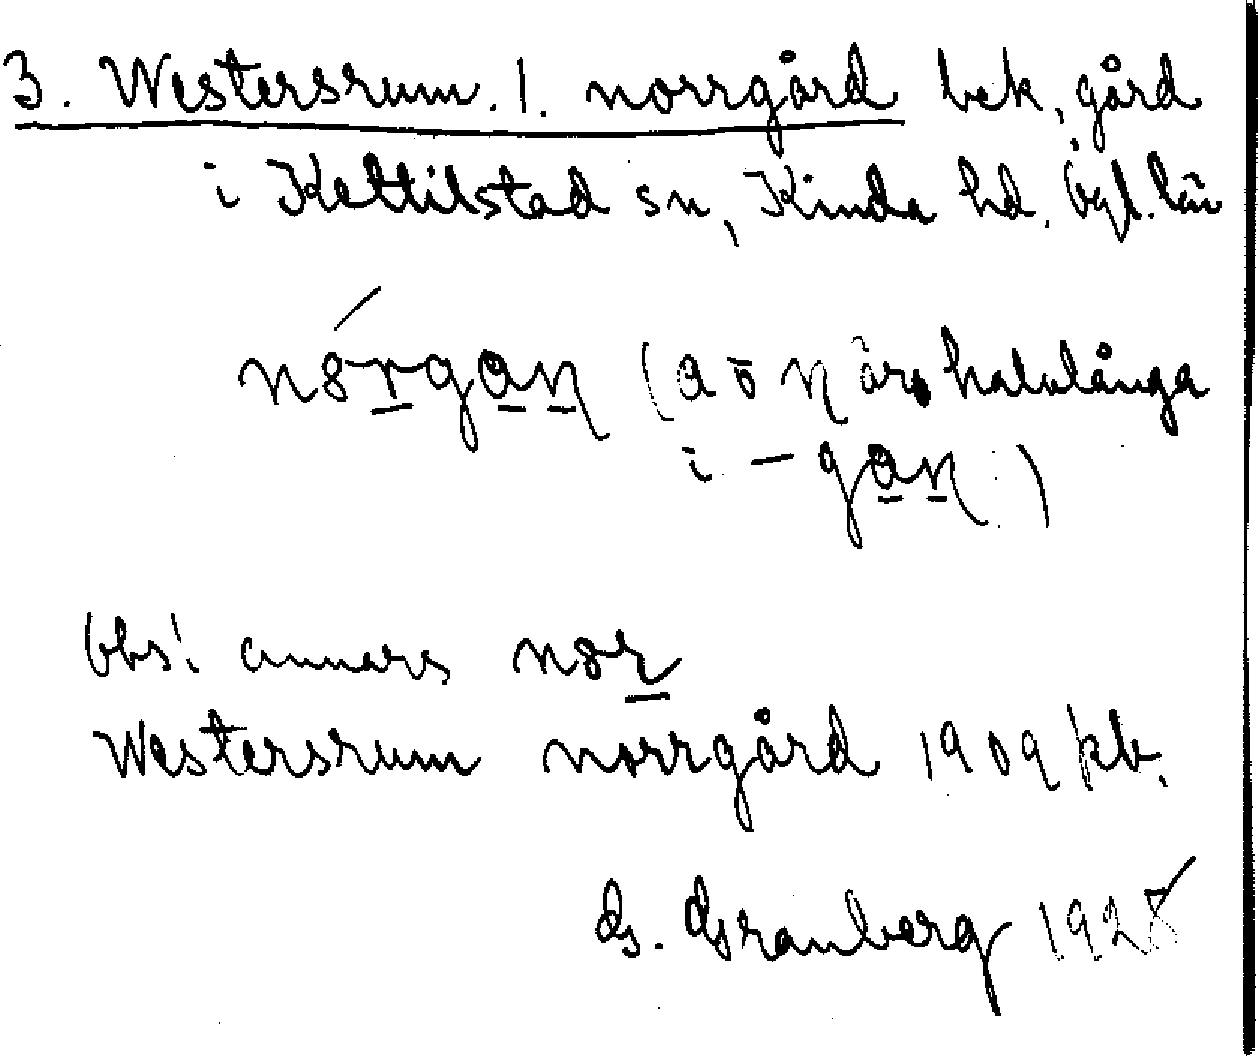 3. Westersrum. 1. norrgård bek. gård
i Kettilstad sn, Kinda hd. Ögl. län
nórgan (a o n äro halvlånga
i - gan.)
Obs! annars nor
Westersrum norrgård 1909 kb.
G. Granberg 1928